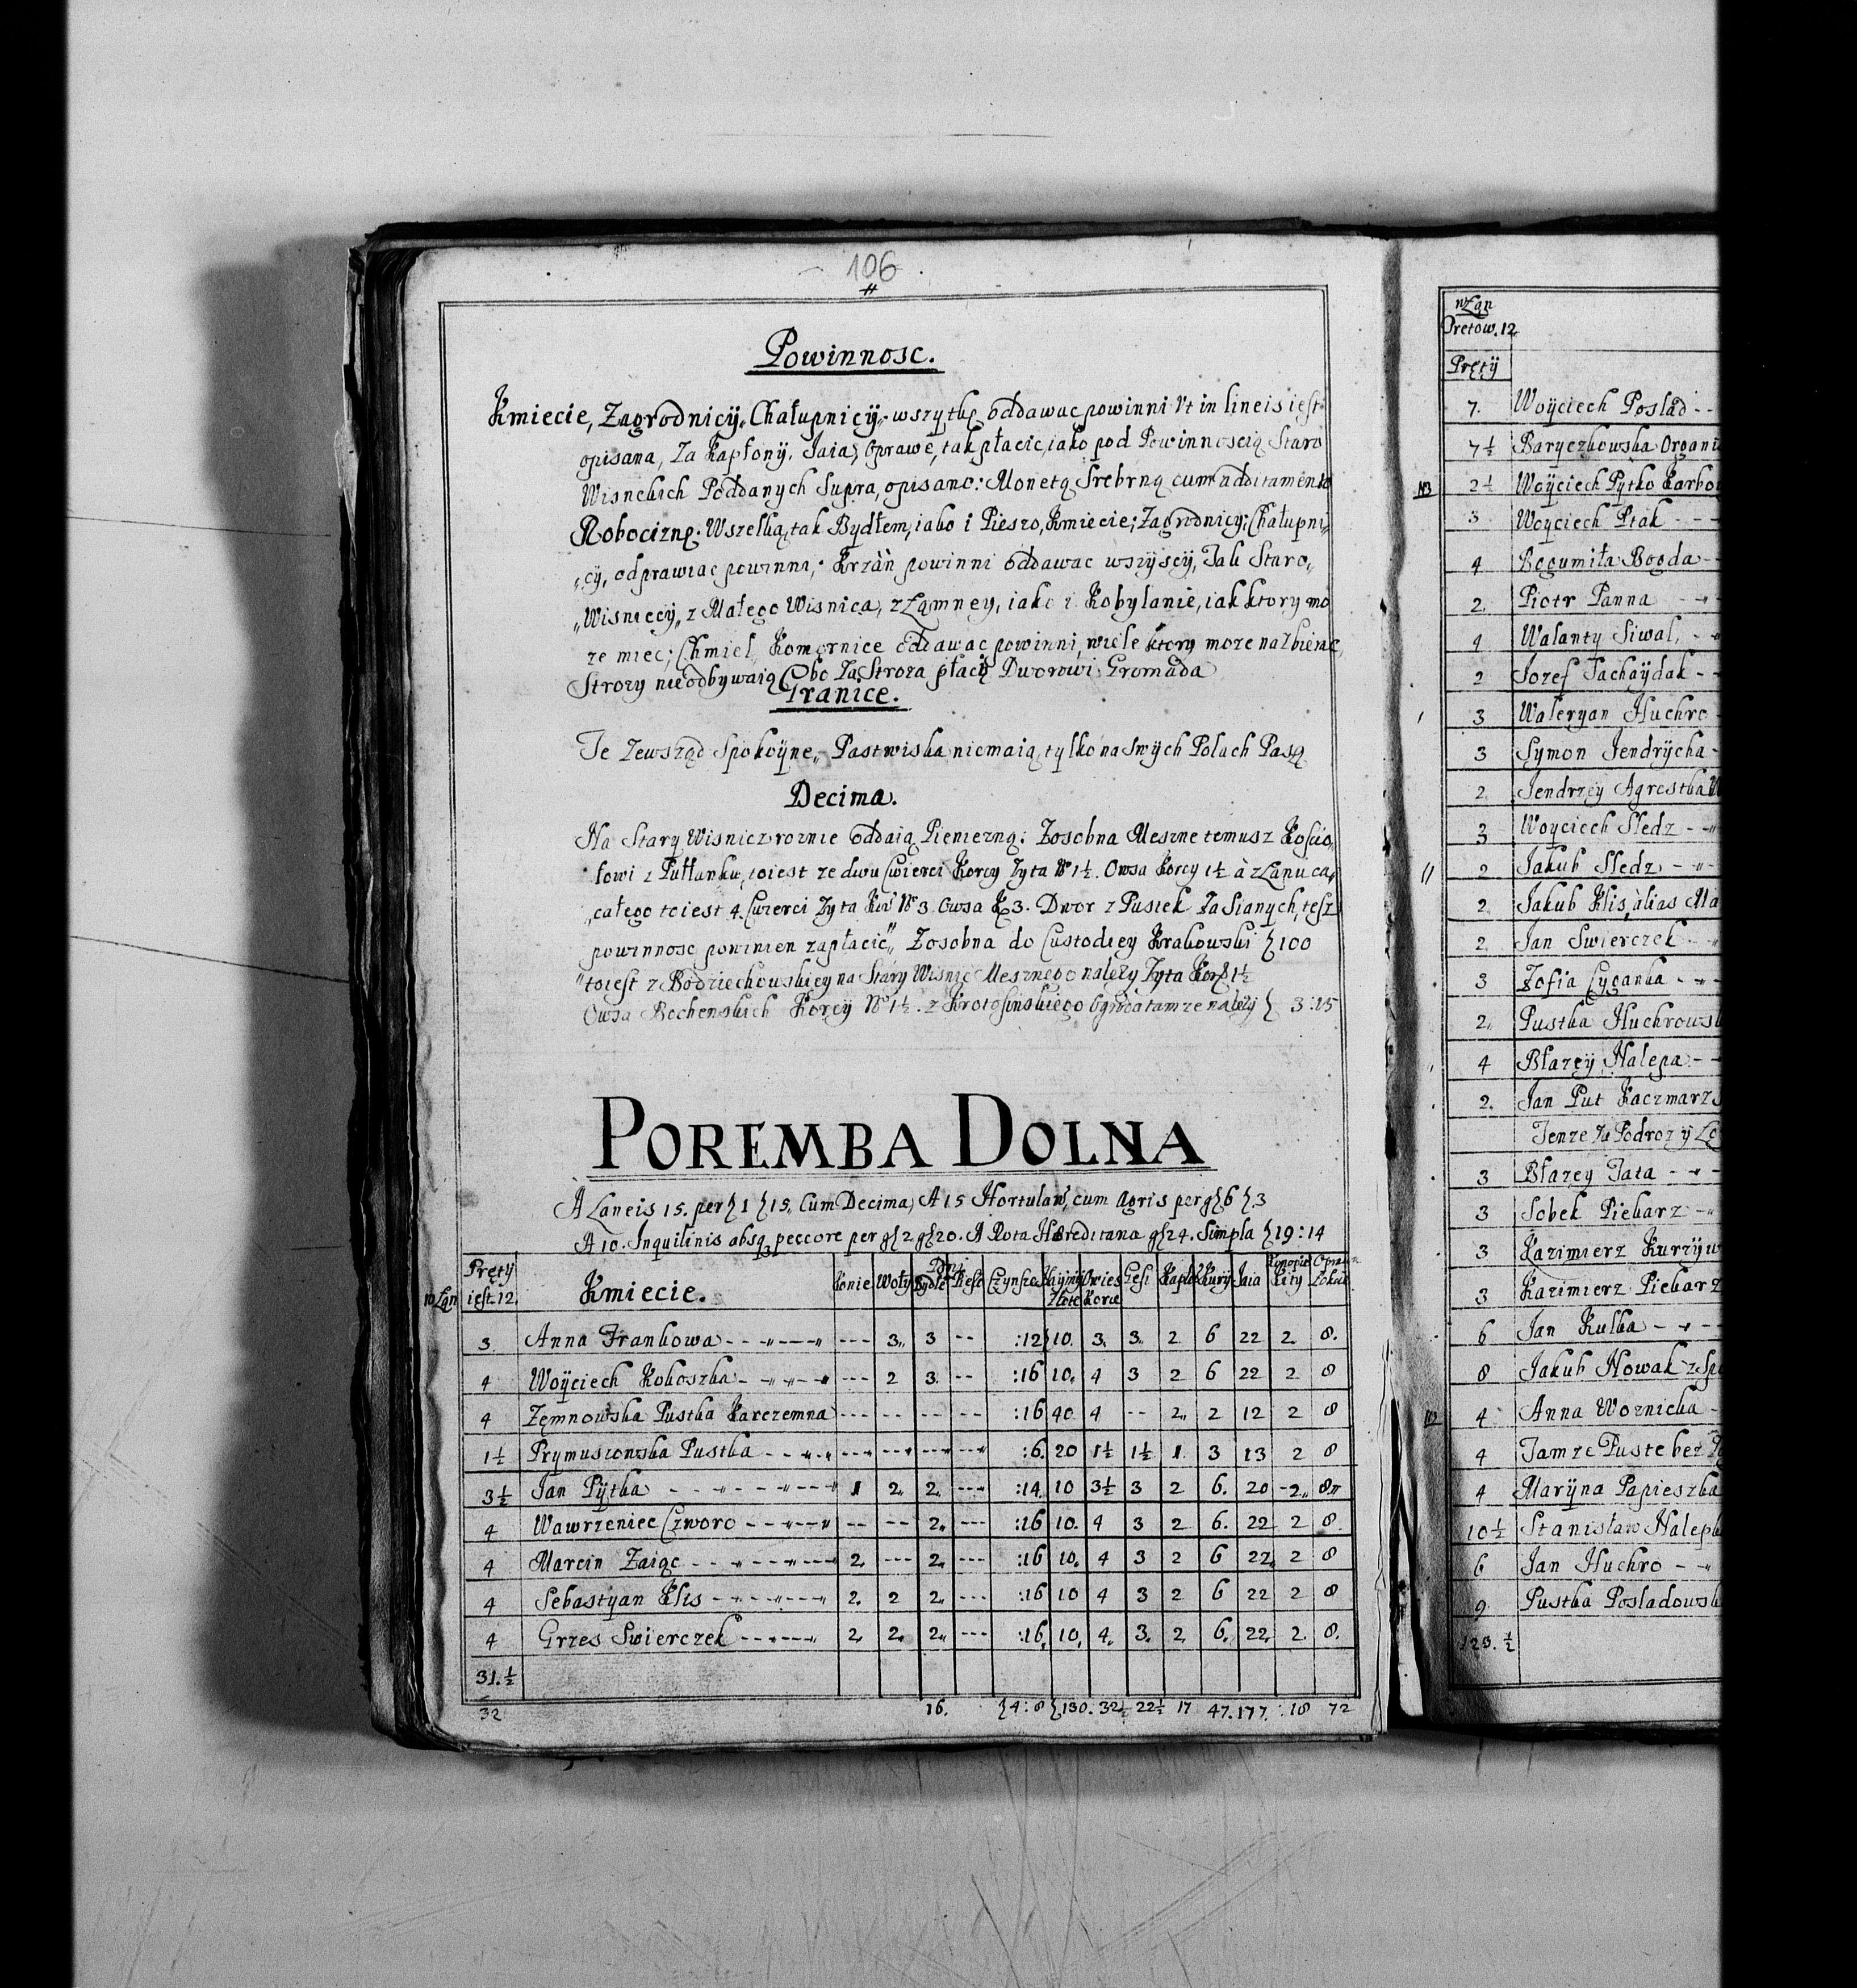 106
Powinnosc.
Kmiecie, Zagrodnicÿ, Chałupnicÿ, wszytkę oddawac powinni Vt in lineis iest
opisana, Za Kapłony, Jaia, Oprawę, tak płacic, iako pod Powinnoscią Staro
Wisneckich Poddanych Supra, opisano: Monetą Srebrną cum additamento
Robociznę Wszelką, tak Bydłem, iako i Pieszo, Kmiecie, Zagrodnicy, Chałupni„
„cy, odprawiac powinni, Krzàn powinni oddawac wszyscy, Jak Staro„
„Wisneccy, z Małego Wisnica, z Łąmney, iako i Kobylanie, iak ktory mo
ze miec; Chmiel Komornice oddawac powinni, wiele ktory moze nazbierac,
Strozy nie odbywaią Obo Za Stroza płacą Dworowi Gromada
Granice.
Te Zewsząd Spokoÿne, Pastwiska niemaią, tylko na Swych Polach Pasą
Decima.
Na Stary Wisnicz roznie oddaią Pienięzną: Zosobna Meszne temusz Koscio„
łowi z Półłanku, toiest ze dwu Cwierci Korcy Zyta No 1½. Owsa Korcy 1½ à z Łanu ca„
„całego toiest 4. Cwierci Zyta Kor No 3. Owsa K 3. Dwor z Pustek Zasianych, tesz
powinnosc powinien zapłacic„ Zosobna do Custodiey Krakowski 100
toiest z Bodziechowskiey na Stary Wisnic Mesznego nalezy Zyta Kor 1½
Owsa Bochenskich Korcy No 1½. z Krotosinskiego Ogroda tamze nalezy 3:15
POREMBA DOLNA
A Laneis 15. per 1 15. Cum Decima, A 15 Hortulan, cum agris per g 6 .3
A 10. Inquilinis absq peccore per g 2 g 20. A Rota Hæreditaria g 24. Simpla 19:14
10 Łan Pręty iest. 12. Kmiecie. Konie Woły Bydłe Piesz Czynsze Złote Owies Korce Gęsi Kapło Kury Jaia Konopie Kity Opraw Łokcie
3. Anna Frankowa --- 3„ 3 -- :12 10. 3. 3. 2 6 22 2. 8.
4 Woÿciech Kokoszka --- 2 3. -- :16 10. 4 3 2 6 22 2 8
4 Zęmnowska Pustka Karczemna --- -- -- -- :16 40 4 -- 2„ 2 12 2 8
1½ Prymusowska Pustka --- --- --- --- :6. 20 1½ 1½ 1. 3 13 2 8
3½ Jan Pÿtka 1 2„ 2„ --- :14. 10 3½ 3 2 6. 20 -2„ 8„
4 Wawrzeniec Czworo -- -- 2„ --- :16 10. 4 3 2 6. 22 2 8
4 Marcin Zaiąc 2. --- 2„ --- :16 10. 4 3 2 6 22. 2 8
4 Sebastyan Klis 2. 2 2„ --- :16 10 4 3 2 6 22 2 8
4 Grzes Swierczek 2. 2„ 2„ --- :16. 10. 4. 3. 2. 6. 22. 2. 8.
31.½
32 16. 4:8 130. 32½ 22½ 17 47. 177. :18 72
w Łan
Prętow. 12
Prętÿ
7. Woÿciech Poslad
7½ Baryczkowska Organi
2½ Woÿciech Pytko Karbo
3 Woyciech Ptak
4 Bogumiła Bogda
2. Piotr Panna
4 Walanty Siwal,
2 Jozef Tachaÿdak
3 Waleryan Huchro
3 Sÿmon Jendrÿcha
2 Jendrzey Agrestka
3 Woyciech Sledz
2 Jakub Sledz
2. Jakub Klis, àlias Ma
2. Jan Swierczek
3 Zofia Cyganka
2„ Pustka Huchrowsk
4 Błazeÿ Nalepa
2. Jan Put Kaczmarz
Tenze Za Podrozÿ
3 Błazey Tata
3 Sobek Piekarz
3 Kazimierz Kurzÿw
3 Kazimierz Piekarz
6 Jan Kulka
8 Jakub Nowak z
4 Anna Woznicka
4 Tamze Puste bez
4 Marÿna Papieszka
10½ Stanisław Nalep
6 Jan Huchro
9 Pustka Posladowsk
123.½